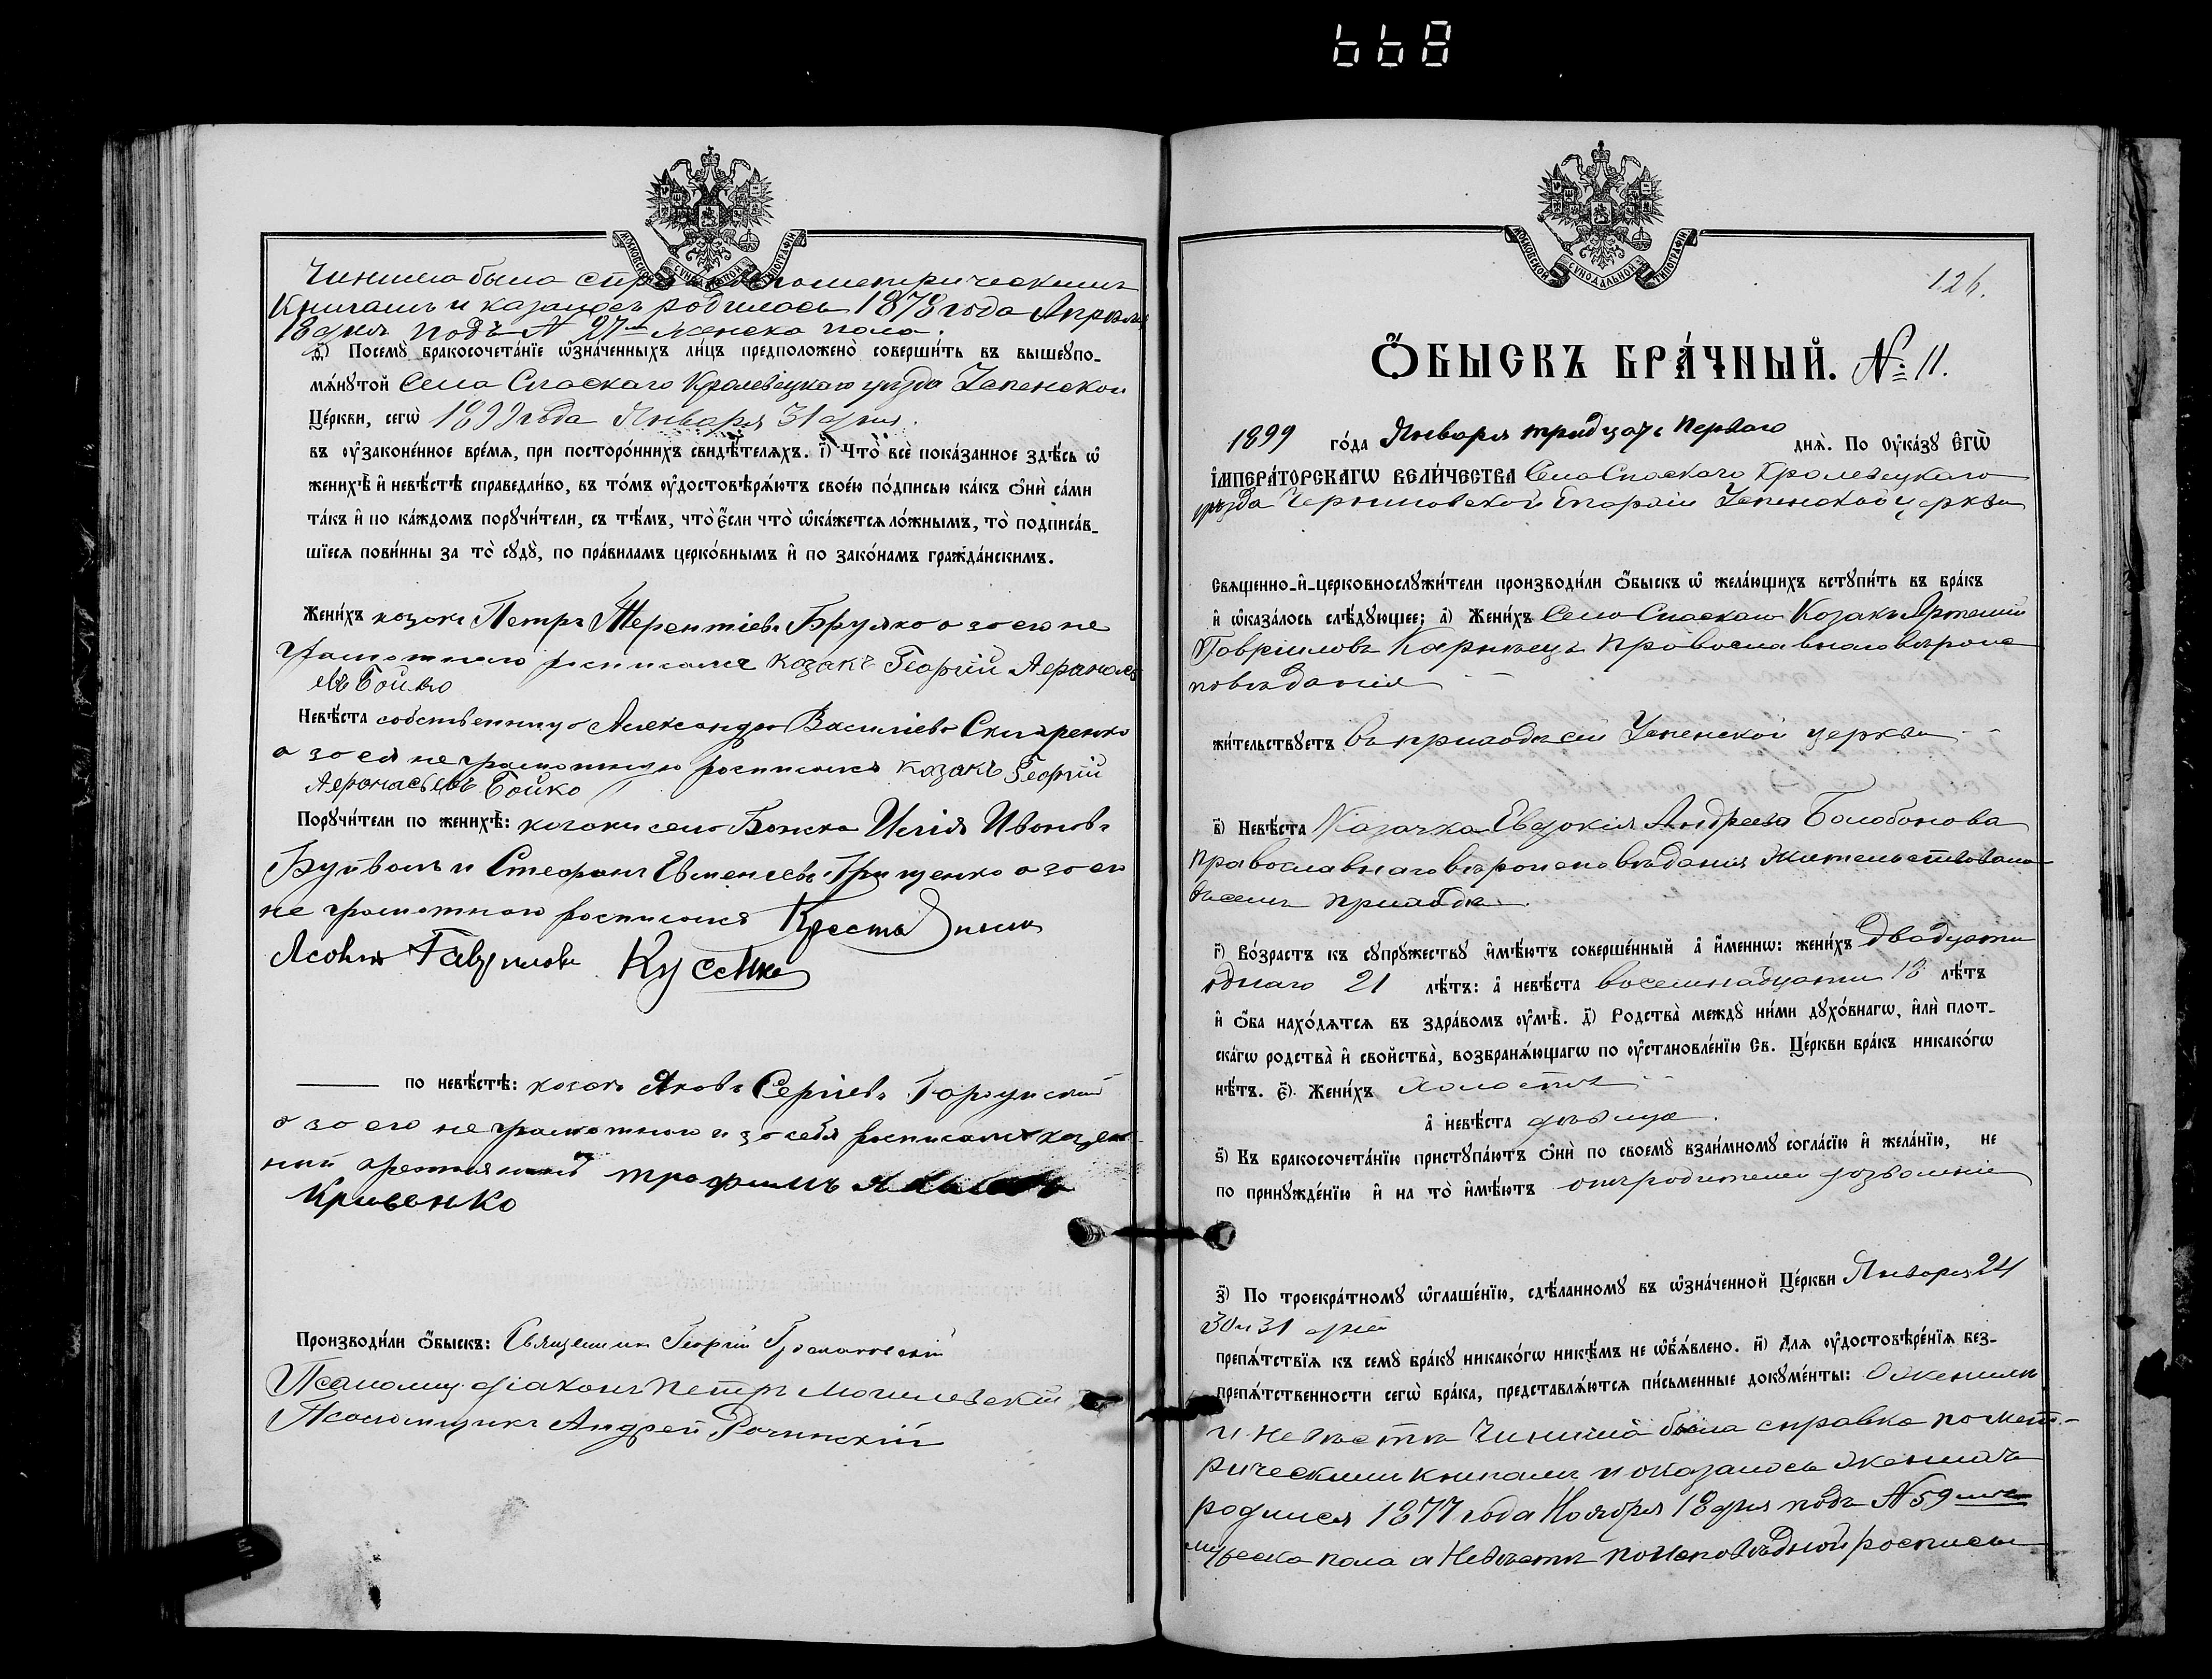 668
МОСКОВСКОЙ СѴНОДАЛЬНОЙ ТИПОГРАФІИ
Чинина была спр по метрическимъ
Книгамъ и казалось родилась 1878 года Апреля
18 дня подъ N 27 женска пола.
ѳ) Посемꙋ бракосочетаніе ѡзначенныхъ лицъ предположено совершить въ вышеꙋпо-
мянꙋтой Села Спаскаго Кролевецкаго уезда Успенской
Церкви, сегѡ 1899 года Января 31 дня.
въ оузаконенное время, при постороннихъ свидѣтеляхъ. і) Что все показанное здѣсь ѡ
женихѣ и невѣстѣ справедливо, въ томъ оудостовѣряютъ своею подписью какъ ѻни сами
такъ и по каждомъ порꙋчители, съ тѣмъ, что єсли что ѡкажется ложнымъ, то подписав-
шіеся повинны за то сꙋдꙋ, по правиламъ церковнымъ и по законамъ гражданскимъ.
Женихъ козакъ Петръ Терентіевъ Бруяко а за его не
грамотнаго росписался козакъ Георгій Афанась
евъ Бойко
Невѣста собственница Александра Василіева Скляренко
а за ея неграмотную росписался козакъ Георгій
Афанасьевъ Бойко
Порꙋчители по женихѣ: козаки села Илія Ивановъ
и Стефанъ Евменіевъ Грищенко а за ихъ
не грамотного росписался Крестьянинъ
Гаврилов Кусенко
по невѣстѣ: козакъ Яковъ Сергіевъ
а за его не грамотнаго и за себя росписался
Трофимъ
Кривенко
Производили ѻбыскъ: Священникъ Георгій
Псаломщ. діаконъ Петръ Могилевскій
Псаломщикъ Андрей
МОСКОВСКОЙ СѴНОДАЛЬНОЙ ТИПОГРАФІИ
126.
ѺБЫСКЪ БРАЧНЫЙ. №: 11.
1899 года Января тридцать Перваго дня. По Оуказꙋ ЄГѠ
ІМПЕРАТОРСКАГѠ ВЕЛИЧЕСТВА Села Спаскаго Кролевецкаго
уезда Черниговской Епархіи Успенской церкви
Священно-и-церковнослꙋжители производили ѻбыскъ ѡ желающихъ встꙋпить въ бракъ
и ѡказалось слѣдꙋющее; а) Женихъ Села Спаскаго Козакъ Артемій
Гавріиловъ Карнѣецъ Православнаго вѣроис
повѣданія
жительствꙋетъ въ приходѣ сей Успенской церкви
в) Невѣста Казачка Евдокія Андреева Балабонова
Православнаго вѣроисповѣданія Жительствовала
въ семъ приходѣ.
г) Возрастъ къ сꙋпрꙋжествꙋ имѣютъ совершенный а именнѡ: женихъ двадцати
однаго 21 лѣтъ: а невѣста восемнадцати 18 лѣтъ
и ѻба находятся въ здравомъ оумѣ. д) Родства междꙋ ними дꙋховнагѡ, или плот-
скагѡ родства и свойства, возбраняющагѡ по оустановленію Св. Церкви бракъ никакогѡ
нѣтъ. є) Женихъ холостъ
а невѣста дѣвица.
ѕ) Къ бракосочетанію пристꙋпаютъ ѻни по своемꙋ взаимномꙋ согласію и желанію, не
по принꙋжденію и на то имѣютъ отъ родителей дозволеніе
з) По троекратномꙋ ѡглашенію, сдѣланномꙋ въ ѡзначенной Церкви Января 24
30 и 31 дней
препятствія къ семꙋ бракꙋ никакогѡ никѣмъ не ѡбъявлено. и) Для оудостовѣренія без-
препятственности сегѡ брака, представляются письменные докꙋменты: О женихѣ
и невѣстѣ Чинина была справка по мет-
рическими книгами и оказалось женихъ
родился 1877 года Ноября 18 дня подъ N 59
мужеска пола а Невѣста по исповѣдной росписи